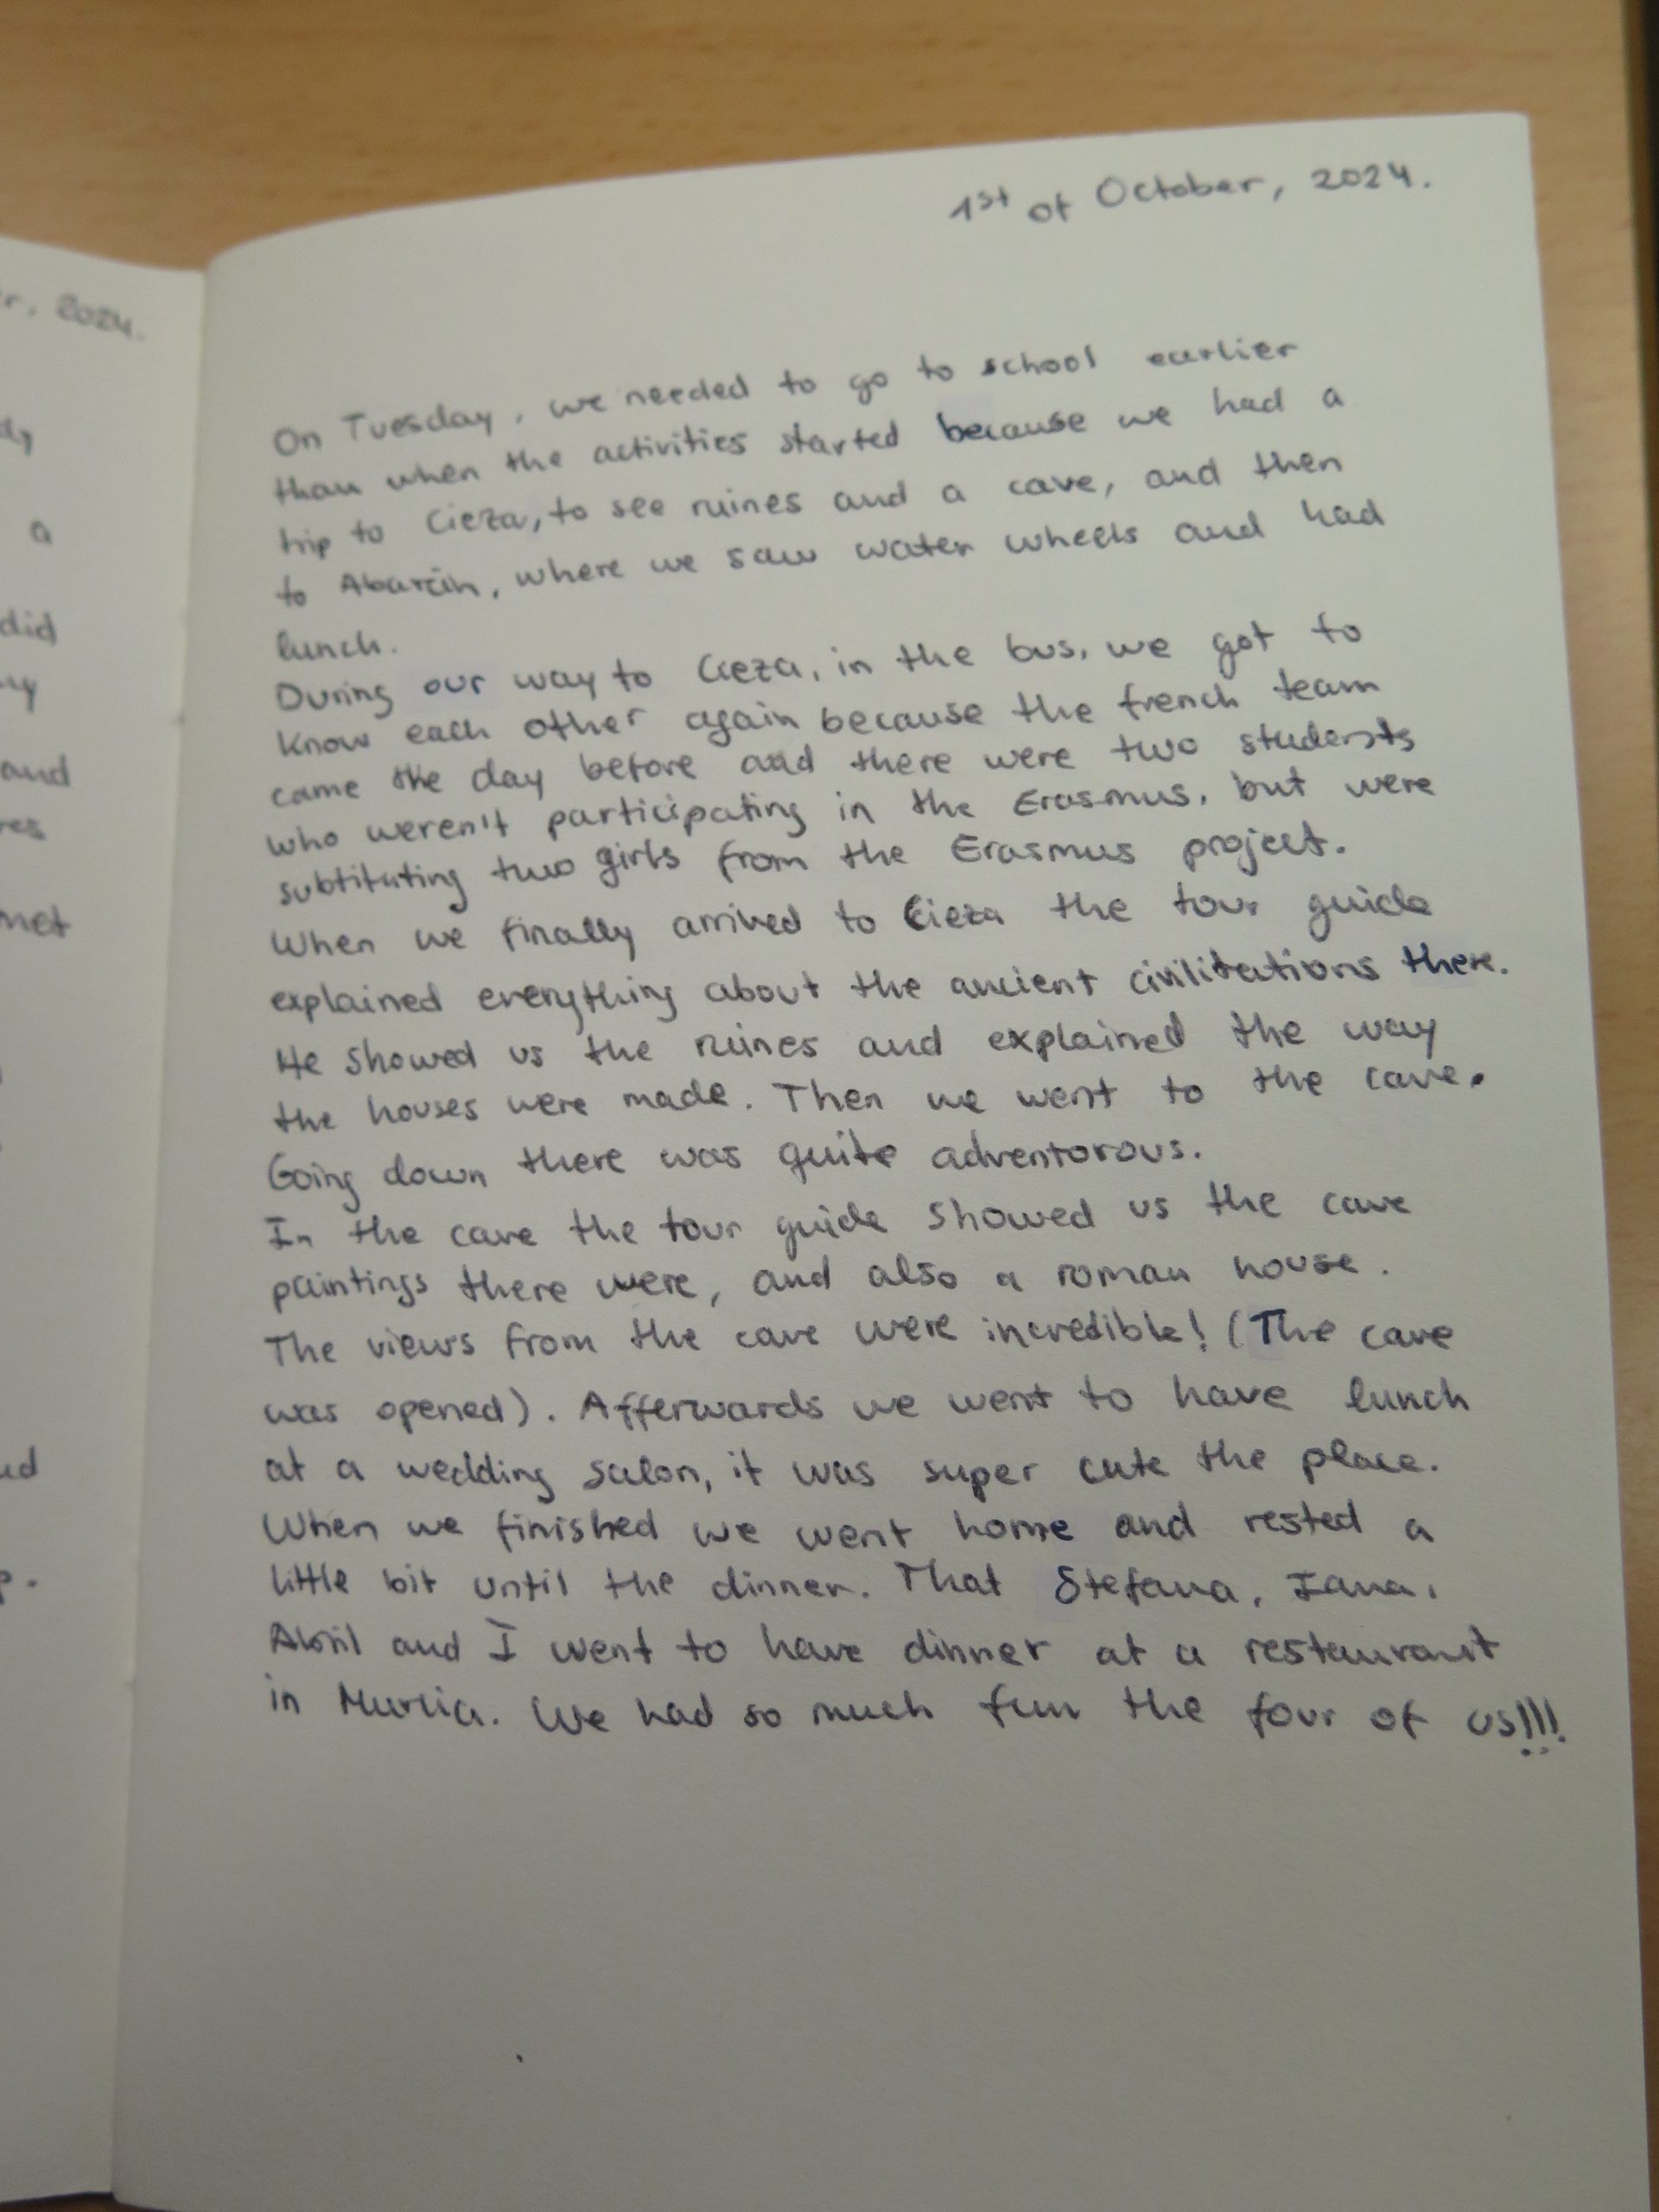 r. 2024.
a
did
and
met
1st of October, 2024.
On Tuesday, we needed to go to school earlier
than when the activities started because we had a
trip to Cieza, to see ruines and a cave, and then
to Abarán, where we saw water wheels and had
lunch.
During our way to Cieza, in the bus, we got to
know each other again because the french team
came the day before and there were two students
who weren't participating in the Erasmus, but were
subtituting two girls from the Erasmus project.
When we finally arrived to Cieza the tour guide
explained everything about the ancient civilitations there.
He showed us the ruines and explained the way
the houses were made. Then we went to the cave.
Going down there was quite adventorous.
In the cave the tour guide showed us the cave
paintings there were, and also a roman house.
The views from the cave were incredible! (The cave
was opened). Afferwards we went to have lunch
at a wedding salon, it was super cute the place.
When we finished we went home and rested a
little bit until the dinner. That Stefana, Iana,
Abril and I went to have dinner at a restaurant
in Murcia. We had so much fun the four of us!!!